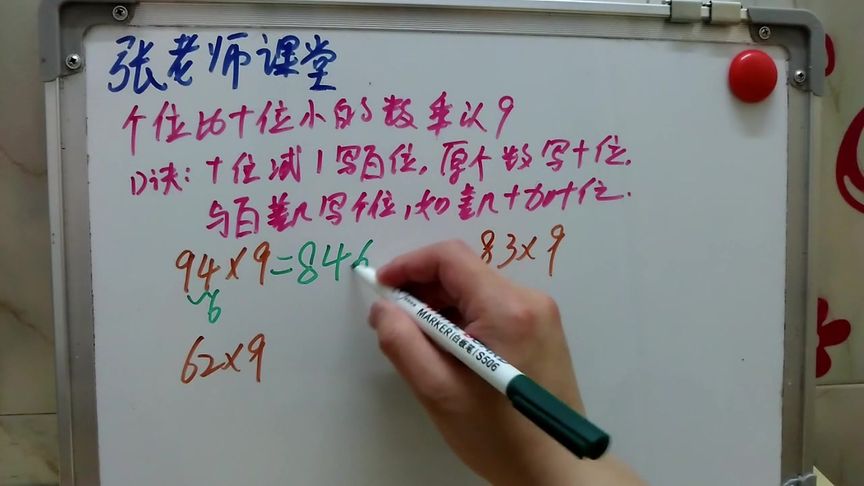 张老师课堂
个位比十位小的数乘以9
口诀:十位减1写百位,原个数写十位,
与百差几写个位,如差几十加十位.
94×9=846
83×9
6
62×9
MARKER(白板笔)S506